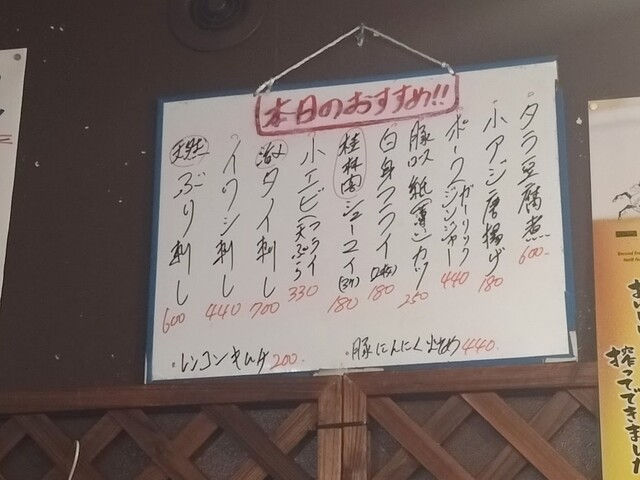 本日のおすすめ!!
タラ豆腐煮 600
小アジ唐揚げ 180
ポーク(ガーリック ジンジャー) 440
豚ロス紙(薄)カツ 250
白身フライ(2枚) 180
桂林閣 シューマイ(3ケ) 180
小エビ(フライ 天ぷら) 330
タイ刺し 700
イワシ刺し 440
天然 ぶり刺し 600
・レンコンキムチ 200
・豚にんにく炒め 440
搾ってできました